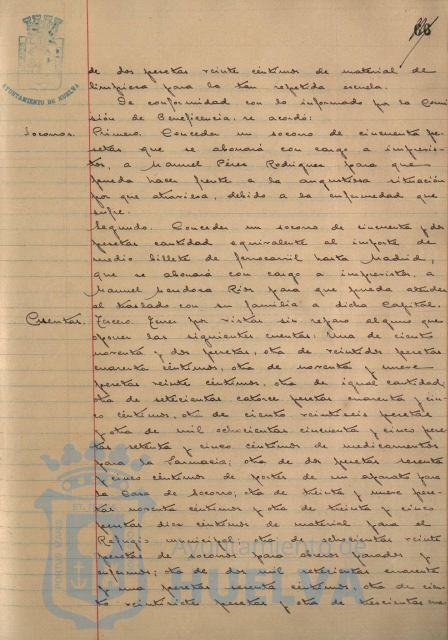 66
AYUNTAMIENTO DE HUELVA
de dos pesetas veinte céntimos de material de
limpieza para la tan repetida escuela.
De conformidad con lo informado por la Comi-
sión de Beneficencia, se acordó:
Socorros. Primero. Conceder un socorro de cincuenta pe-
setas que se abonará con cargo a imprevis-
tos, a Manuel Pérez Rodriguez para que
pueda hacer frente a la angustiosa situación
por que atraviesa, debido a la enfermedad que
sufre.
Segundo. Conceder un socorro de cincuenta y dos
pesetas cantidad equivalente al importe de
medio billete de ferrocarril hasta Madrid,
que se abonará con cargo a imprevistos, a
Manuel Mendoza Rios para que pueda atender
al traslado con su familia a dicha Capital.
Cuentas. Tercero. Tener por vistas sin reparo alguno que
oponer las siguientes cuentas: Una de ciento
noventa y dos pesetas, otra de veintidos pesetas
cuarenta céntimos, otra de noventa y nueve
pesetas veinte céntimos, otra de igual cantidad,
otra de setecientas catorce pesetas cuarenta y cin-
co céntimos, otra de ciento veintiseis pesetas
y otra de mil ochocientas cincuenta y cinco pese-
tas setenta y cinco céntimos de medicamentos
para la Farmacia; otra de dos pesetas sesenta
y cinco céntimos de portes de un aparato para
la Casa de Socorro; otra de treinta y nueve pese-
tas noventa céntimos y otra de treinta y cinco
pesetas diez céntimos de material para el
Refugio municipal; otra de ochocientas veinte
pesetas de socorros para obreros parados y
enfermos; otra de dos mil setecientas cuarenta
y una pesetas sesenta céntimos, otra de cien-
to veintisiete pesetas y otra de trescientas no-
Ayuntamiento de
HUELVA